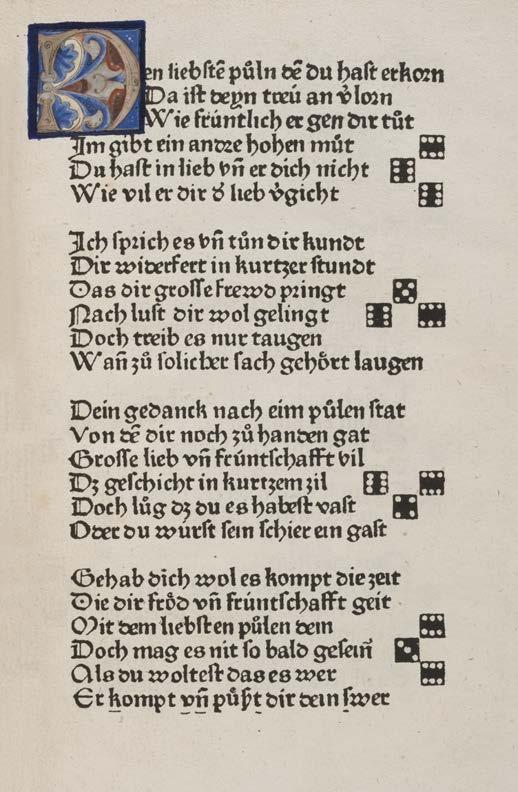 Den liebstē půln dē du hast erkorn
Da ist deyn treü an v̉lorn
Wie früntlich er gen dir tůt
Im gibt ein andre hohen můt
Du hast in lieb vn̄ er dich nicht
Wie vil er dir d̉ lieb v̉gicht
Ich sprich es vn̄ tůn dir kundt
Dir widerfert in kurtzer stundt
Das dir grosse frewd pringt
Nach lust dir wol gelingt
Doch treib es nur taugen
Wan̄ zů solicher sach gehört laugen
Dein gedanck nach eim půlen stat
Von dē dir noch zů handen gat
Grosse lieb vn̄ früntschafft vil
Dz geschicht in kurtzem zil
Doch lůg dz du es habest vast
Oder du würst sein schier ein gast
Gehab dich wol es kompt die zeit
Die dir fröd vn̄ früntschafft geit
Mit dem liebsten půlen dein
Doch mag es nit so bald gesein̄
Als du woltest das es wer
Er kompt vn̄ půßt dir dein swer